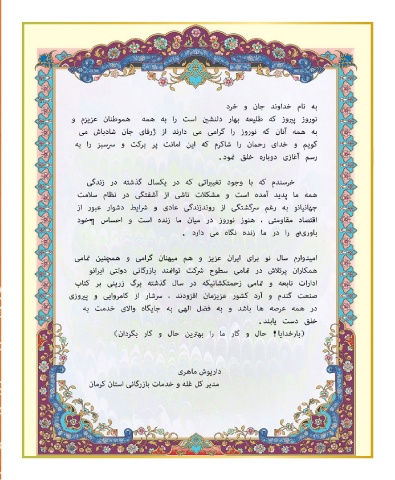 به نام خداوند جان و خرد
نوروز پیروز که طلیعه بهار دلنشین است را به همه هموطنان عزیزم و
به همه آنان که نوروز را گرامی می دارند از ژرفای جان شادباش می
گویم و خدای رحمان را شاکرم که این امانت پر برکت و سرسبز را به
رسم آغازی دوباره خلق نمود.
خرسندم که با وجود تغییراتی که در یکسال گذشته در زندگی
همه ما پدید آمده است و مشکلات ناشی از آشفتگی در نظام سلامت
جهانیانو به رغم سرگشتگی از روندزندگی عادی و شرایط دشوار عبور از
اقتصاد مقاومتی ، هنوز نوروز در میان ما زنده است و احساس خود
باوری را در ما زنده نگاه می دارد .
امیدوارم سال نو برای ایران عزیز و هم میهنان گرامی و همچنین تمامی
همکاران پرتلاش در تمامی سطوح شرکت توانمند بازرگانی دولتی ایرانو
ادارات تابعه و تمامی زحمتکشانیکه در سال گذشته برگ زرینی بر کتاب
صنعت گندم و آرد کشور عزیزمان افزودند ، سرشار از کامروایی و پیروزی
در همه عرصه ها باشد و به فضل الهی به جایگاه والای خدمت به
خلق دست یابند.
(بارخدایا! حال و کار ما را بهترین حال و کار بگردان)
داریوش ماهری
مدیر کل غله و خدمات بازرگانی استان کرمان